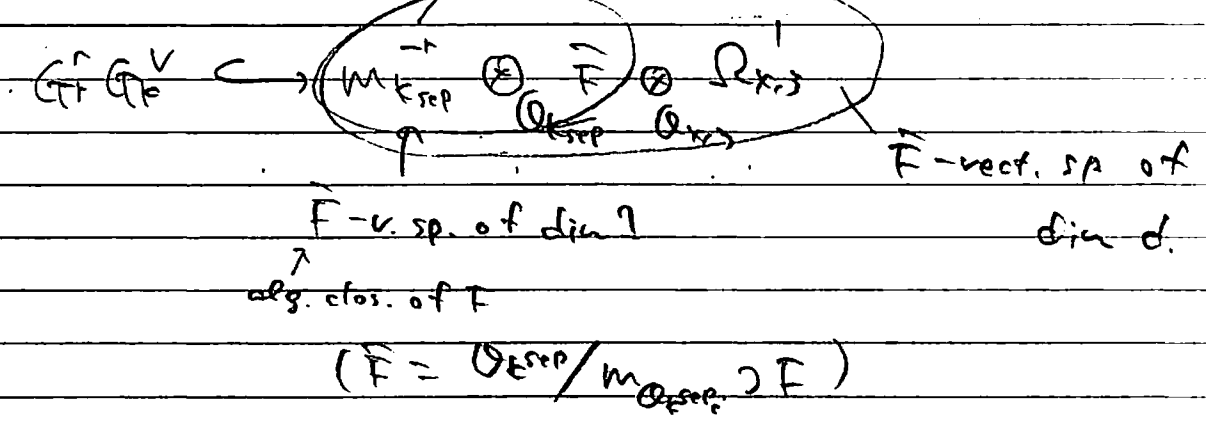 Gr^r G_k^V ↪ ( m_{k^sep}^{-r} ⊗_{O_{k^sep}} F̄ ) ⊗_{O_{X,ξ}} Ω^1_{X,ξ}
F̄-vect. sp of
F̄-v. sp. of dim 1
dim d.
alg. clos. of F
(F̄ = O_{k^sep} / m_{O_{k^sep}} ⊃ F)